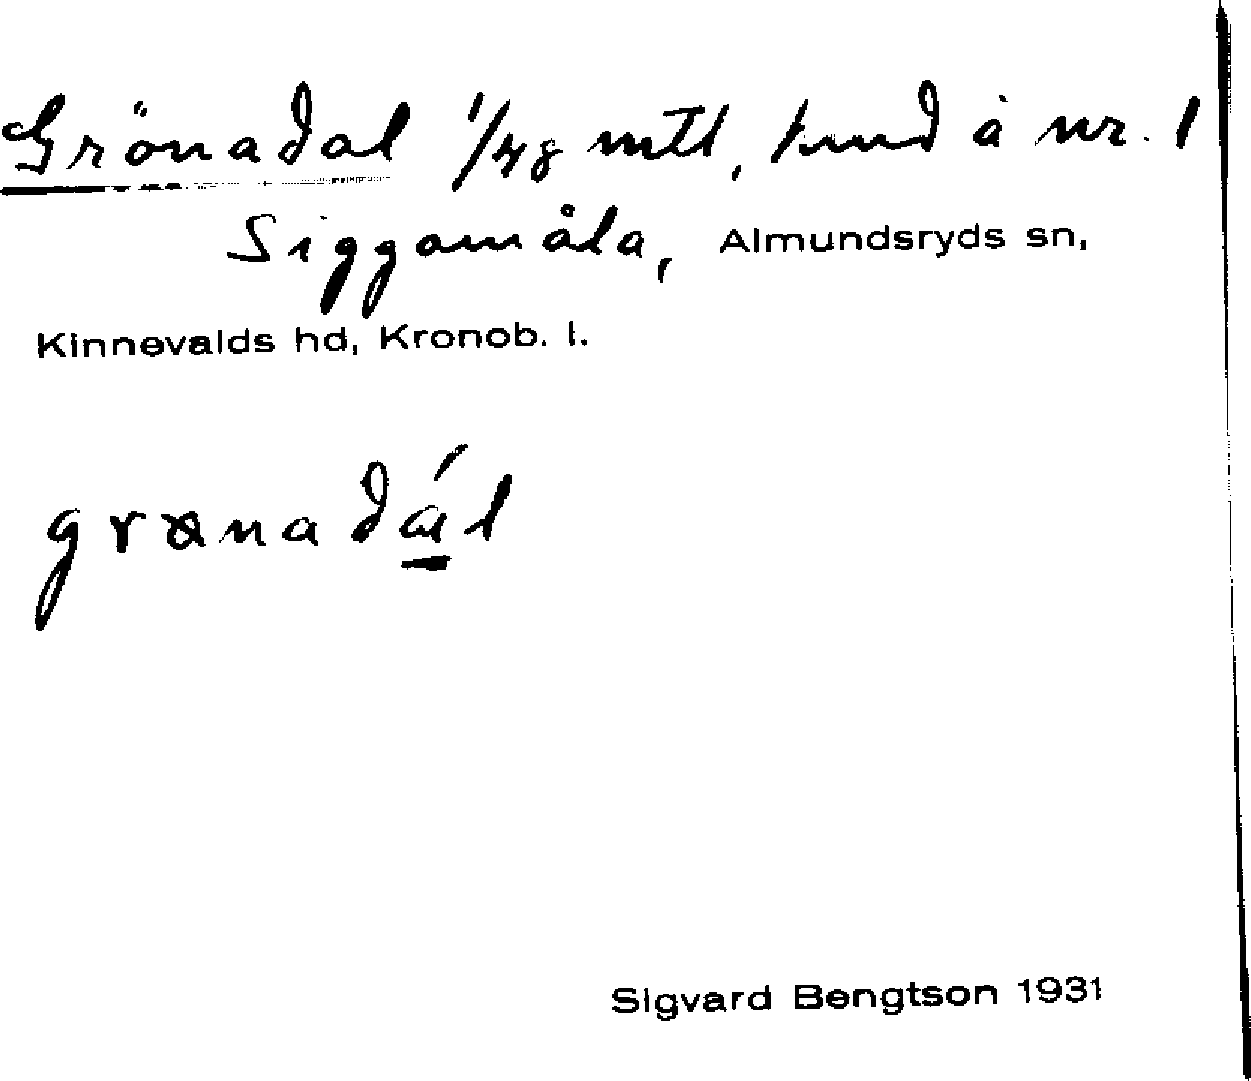 Grönadal 1/48 mtl, hmd å nr. 1
Siggamåla, Almundsryds sn,
Kinnevalds hd, Kronob. l.
grønadál
Sigvard Bengtson 1931